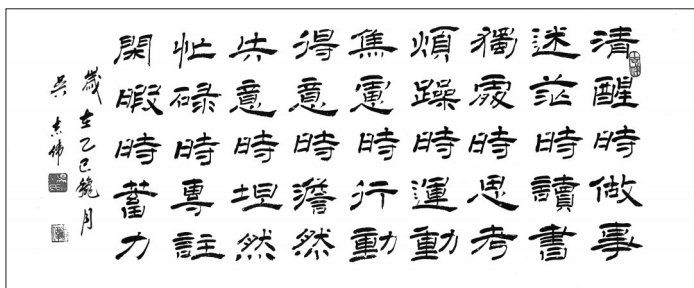 清醒時做事
迷茫時讀書
獨處時思考
煩躁時運動
焦慮時行動
得意時澹然
失意時坦然
忙碌時專註
閑暇時蓄力
歲在乙巳月
吳偉